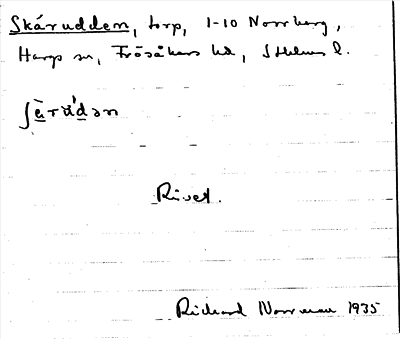 Skärudden, torp, 1-10 Norrberg,
Hargs sn, Frösåkers hd, Sthlms l.
ʃæ̀rúdən
Rivet.
Richard Norrman 1935